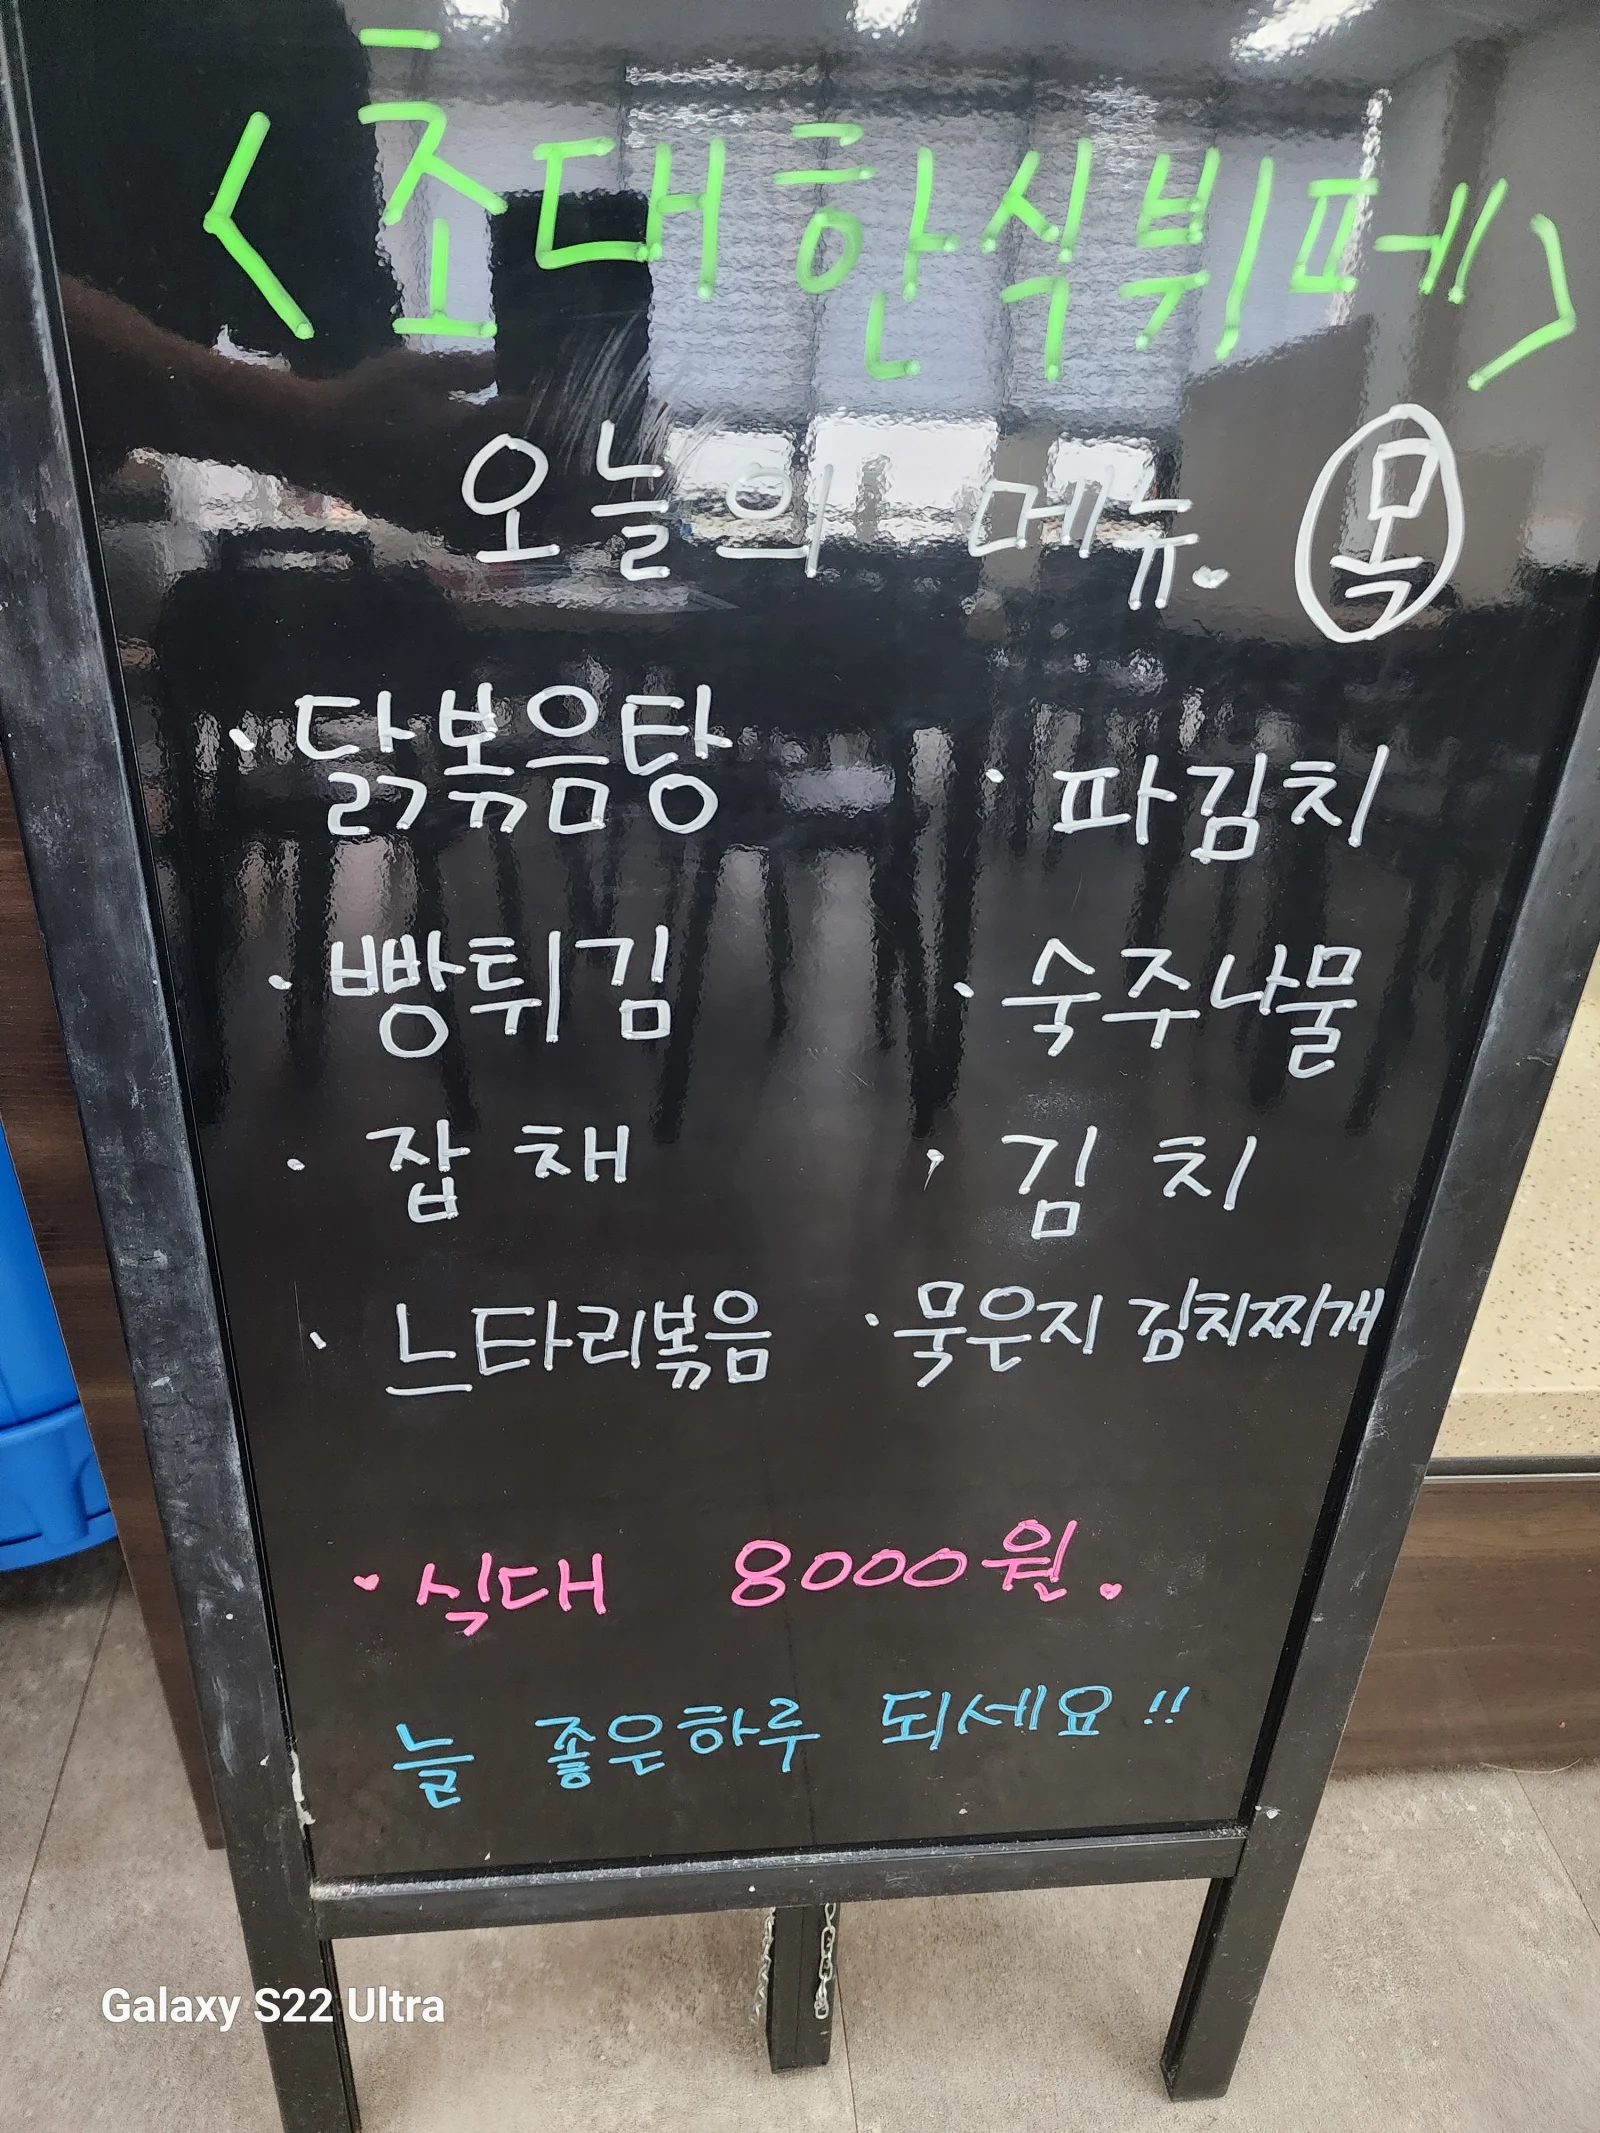 <초대한식뷔페>
오늘의 메뉴. 목
· 닭볶음탕 · 파김치
· 빵튀김 · 숙주나물
· 잡채 · 김치
· 느타리볶음 · 묵은지 김치찌개
· 식대 8000원.
늘 좋은하루 되세요!!
Galaxy S22 Ultra